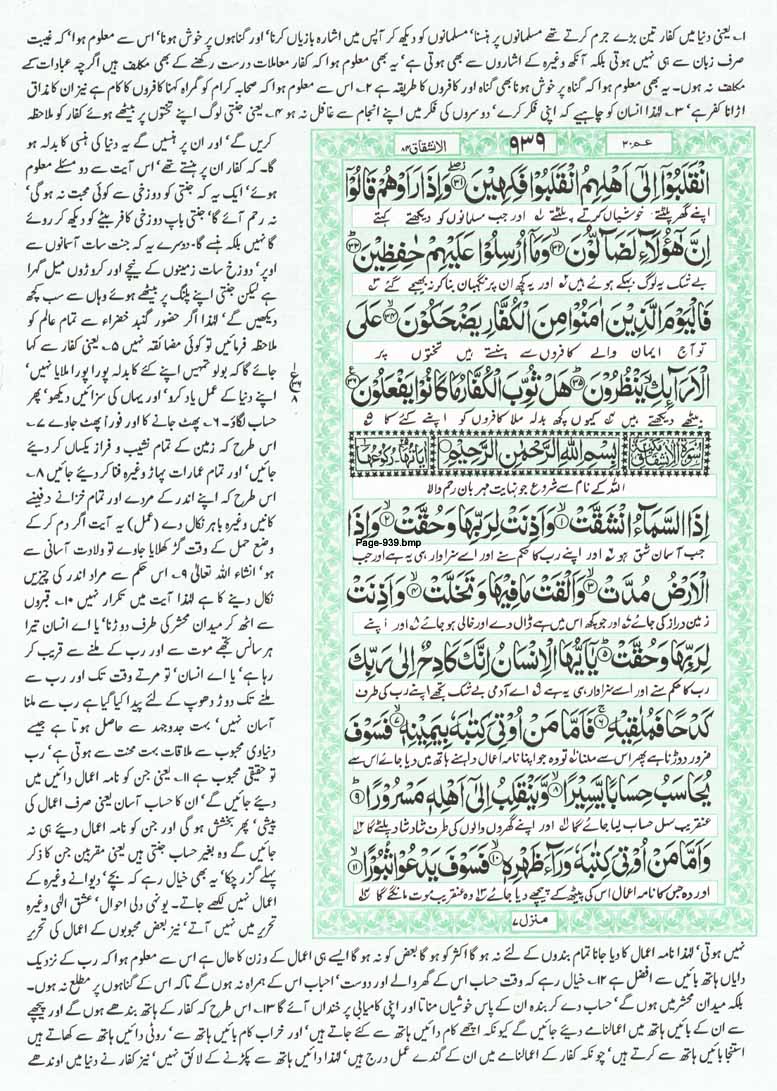 ۱۔ یعنی دنیا میں کفار تین بڑے جرم کرتے تھے مسلمانوں پر ہنسنا‘ مسلمانوں کو دیکھ کر آپس میں اشارہ بازیاں کرنا‘ اور گناہوں پر خوش ہونا‘ اس سے معلوم ہوا‘ کہ غیبت
صرف زبان سے ہی نہیں ہوتی بلکہ آنکھ وغیرہ کے اشاروں سے بھی ہوتی ہے‘ یہ بھی معلوم ہوا کہ کفار معاملات درست رکھنے کے بھی مکلف ہیں اگرچہ عبادات کے
مکلف نہ ہوں۔ یہ بھی معلوم ہوا کہ گناہ پر خوش ہونا بھی گناہ اور کافروں کا طریقہ ہے ۲۔ اس سے معلوم ہوا کہ صحابہ کرام کو گمراہ کہنا کافروں کا کام ہے نیز ان کا مذاق
اڑانا کفر ہے‘ ۳۔ لہٰذا انسان کو چاہیے کہ اپنی فکر کرے‘ دوسروں کی فکر میں اپنے انجام سے غافل نہ ہو ۴۔ یعنی جنتی لوگ اپنے تختوں پر بیٹھے ہوئے کفار کو ملاحظہ
عم ۳۰
۹۳۹
الانشقاق ۸۴
انْقَلَبُوْۤا اِلٰۤى اَهْلِهِمُ انْقَلَبُوْا فَكِهِیْنَ ۳۱ وَ اِذَا رَاَوْهُمْ قَالُوْۤا
اپنے گھر پلٹتے خوشیاں کرتے پلٹتے اور جب مسلمانوں کو دیکھتے کہتے
اِنَّ هٰۤؤُلَآءِ لَضَآلُّوْنَ ۳۲ وَ مَاۤ اُرْسِلُوْا عَلَیْهِمْ حٰفِظِیْنَ ۳۳
بے شک یہ لوگ بہکے ہوئے ہیں اور یہ کچھ ان پر نگہبان بنا کر نہ بھیجے گئے
فَالْیَوْمَ الَّذِیْنَ اٰمَنُوْا مِنَ الْكُفَّارِ یَضْحَكُوْنَ ۳۴ عَلَى
تو آج ایمان والے کافروں سے ہنستے ہیں تختوں پر
الْاَرَآىٕكِ یَنْظُرُوْنَ ۳۵ هَلْ ثُوِّبَ الْكُفَّارُ مَا كَانُوْا یَفْعَلُوْنَ ۳۶
بیٹھے دیکھتے ہیں کیوں کچھ بدلہ ملا کافروں کو اپنے کئے کا
سورة الانشقاق مكية
بِسْمِ اللّٰهِ الرَّحْمٰنِ الرَّحِیْمِ
اللہ کے نام سے شروع جو نہایت مہربان رحم والا
اِذَا السَّمَآءُ انْشَقَّتْ ۱ وَ اَذِنَتْ لِرَبِّهَا وَ حُقَّتْ ۲ وَ اِذَا
Page-939.bmp
جب آسمان شق ہو اور اپنے رب کا حکم سنے اور اسے سزاوار ہی یہ ہے اور جب
الْاَرْضُ مُدَّتْ ۳ وَ اَلْقَتْ مَا فِیْهَا وَ تَخَلَّتْ ۴ وَ اَذِنَتْ
زمین دراز کی جائے اور جو کچھ اس میں ہے ڈال دے اور خالی ہو جائے اور اپنے
لِرَبِّهَا وَ حُقَّتْ ۵ یٰۤاَیُّهَا الْاِنْسَانُ اِنَّكَ كَادِحٌ اِلٰى رَبِّكَ
رب کا حکم سنے اور اسے سزاوار ہی یہ ہے اے آدمی بے شک تجھے اپنے رب کی طرف
كَدْحًا فَمُلٰقِیْهِ ۶ فَاَمَّا مَنْ اُوْتِیَ كِتٰبَهٗ بِیَمِیْنِهٖ ۷ فَسَوْفَ
ضرور دوڑنا ہے پھر اس سے ملنا تو وہ جو اپنا نامہ اعمال داہنے ہاتھ میں دیا جائے اس سے
یُحَاسَبُ حِسَابًا یَّسِیْرًا ۸ وَّ یَنْقَلِبُ اِلٰۤى اَهْلِهٖ مَسْرُوْرًا ۹
عنقریب سہل حساب لیا جائے گا اور اپنے گھر والوں کی طرف شاد شاد پلٹے گا
وَ اَمَّا مَنْ اُوْتِیَ كِتٰبَهٗ وَرَآءَ ظَهْرِهٖ ۱۰ فَسَوْفَ یَدْعُوْا ثُبُوْرًا ۱۱
اور وہ جس کا نامہ اعمال اس کی پیٹھ کے پیچھے دیا جائے وہ عنقریب موت مانگے گا
منزل ۷
کریں گے‘ اور ان پر ہنسیں گے یہ دنیا کی ہنسی کا بدلہ ہو
گا۔ کہ کفار ان پر ہنستے تھے‘ اس آیت سے دو مسئلے معلوم
ہوئے‘ ایک یہ کہ جنتی کو دوزخی سے کوئی محبت نہ ہو گی‘
نہ رحم آئے گا‘ جنتی باپ دوزخی کافر بیٹے کو دیکھ کر روئے
گا نہیں بلکہ ہنسے گا۔ دوسرے یہ کہ جنت سات آسمانوں سے
اوپر‘ دوزخ سات زمینوں کے نیچے اور کروڑوں میل گہرا
ہے لیکن جنتی اپنے پلنگ پر بیٹھے ہوئے وہاں سے سب کچھ
دیکھیں گے‘ لہٰذا اگر حضور گنبد خضراء سے تمام عالم کو
ملاحظہ فرمائیں تو کوئی مضائقہ نہیں ۵۔ یعنی کفار سے کہا
جائے گا کہ بولو تمہیں اپنے کئے کا بدلہ پورا پورا ملا یا نہیں‘
اپنے دنیا کے عمل یاد کرو‘ اور یہاں کی سزائیں دیکھو‘ پھر
حساب لگاؤ۔ ۶۔ پھٹ جانے کا اور فوراً پھٹ جاوے ۷۔
اس طرح کہ زمین کے تمام نشیب و فراز یکساں کر دیئے
جائیں‘ اور تمام عمارات پہاڑ وغیرہ فنا کر دیئے جائیں ۸۔
اس طرح کہ اپنے اندر کے مردے اور تمام خزانے دفینے
کانیں وغیرہ باہر نکال دے (عمل) یہ آیت اگر دم کر کے
وضع حمل کے وقت گڑ کھلایا جاوے تو ولادت آسانی سے
ہو‘ انشاء اللہ تعالیٰ ۹۔ اس حکم سے مراد اندر کی چیزیں
نکال دینے کا ہے لہٰذا آیت میں تکرار نہیں ۱۰۔ قبروں
سے اٹھ کر میدان محشر کی طرف دوڑنا‘ یا اے انسان تیرا
ہر سانس تجھے موت سے اور رب کے ملنے سے قریب کر
رہا ہے‘ یا اے انسان‘ تو مرتے وقت تک اور رب سے
ملنے تک دوڑ دھوپ کے لئے پیدا کیا گیا ہے رب سے ملنا
آسان نہیں‘ بہت جدوجہد سے حاصل ہوتا ہے جیسے
دنیاوی محبوب سے ملاقات بہت محنت سے ہوتی ہے‘ رب
تو حقیقی محبوب ہے ۱۱۔ یعنی جن کو نامہ اعمال دائیں میں
دیئے جائیں گے‘ ان کا حساب آسان یعنی صرف اعمال کی
پیشی‘ پھر بخشش ہو گی اور جن کو نامہ اعمال دیئے ہی نہ
جائیں گے وہ بغیر حساب جنتی ہیں یعنی مقربین جن کا ذکر
پہلے گزر چکا‘ یہ بھی خیال رہے کہ بچے‘ دیوانے وغیرہ کے
اعمال نہیں لکھے جاتے۔ یونہی دلی احوال‘ عشق الٰہی وغیرہ
تحریر میں نہیں آتے‘ نیز بعض محبوبوں کے اعمال کی تحریر
نہیں ہوتی‘ لہٰذا نامہ اعمال کا دیا جانا تمام بندوں کے لئے نہ ہو گا اکثر کو ہو گا بعض کو نہ ہو گا ایسے ہی اعمال کے وزن کا حال ہے اس سے معلوم ہوا کہ رب کے نزدیک
دایاں ہاتھ بائیں سے افضل ہے ۱۲۔ خیال رہے کہ وقت حساب اس کے گھر والے اور دوست‘ احباب اس کے ہمراہ نہ ہوں گے تاکہ اس کے گناہوں پر مطلع نہ ہوں۔
بلکہ میدان محشر میں ہوں گے‘ حساب دے کر بندہ ان کے پاس خوشیاں مناتا اور اپنی کامیابی پر خنداں آئے گا ۱۳۔ اس طرح کہ کفار کے ہاتھ بندھے ہوں گے اور پیچھے
سے ان کے بائیں ہاتھ میں اعمالنامے دیئے جائیں گے کیونکہ اچھے کام دائیں ہاتھ سے کئے جاتے ہیں‘ اور خراب کام بائیں ہاتھ سے‘ روٹی دائیں ہاتھ سے کھاتے ہیں
استنجا بائیں ہاتھ سے کرتے ہیں‘ چونکہ کفار کے اعمالنامے میں ان کے گندے عمل درج ہیں‘ لہٰذا دائیں ہاتھ سے پکڑنے کے لائق نہیں‘ نیز کفار نے دنیا میں اوندھے